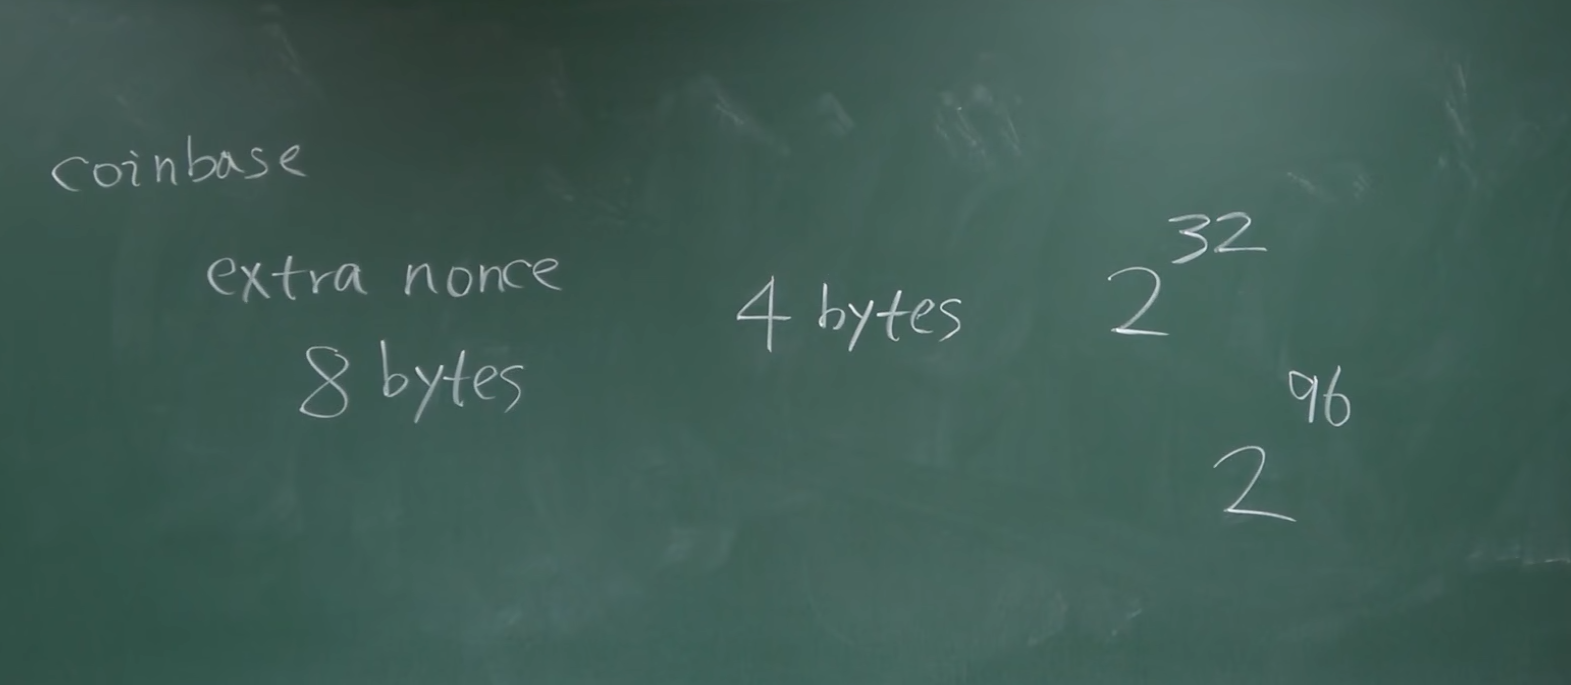 coinbase
extra nonce
8 bytes
4 bytes
2^32
2^96